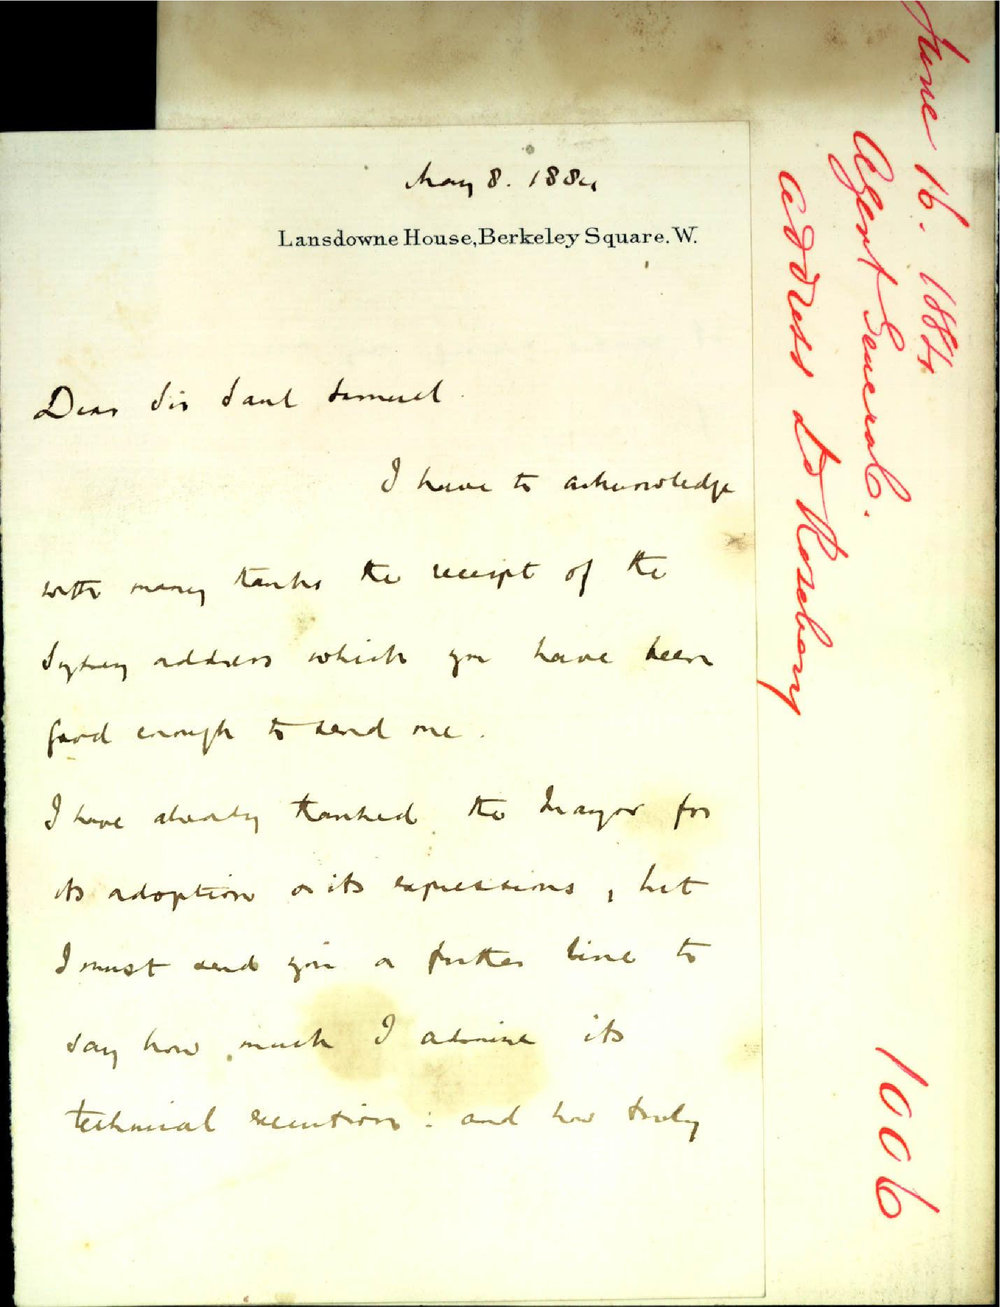 May 8. 1884
Lansdowne House, Berkeley Square. W.
Dear Sir Saul Samuel.
I have to acknowledge
with many thanks the receipt of the
Sydney address which you have been
good enough to send me.
I have already thanked the Mayor for
its adoption & its expressions, but
I must send you a further line to
say how much I admire its
technical execution: and how truly
June 16. 1884
Agent General.
address to Rosebery
1006